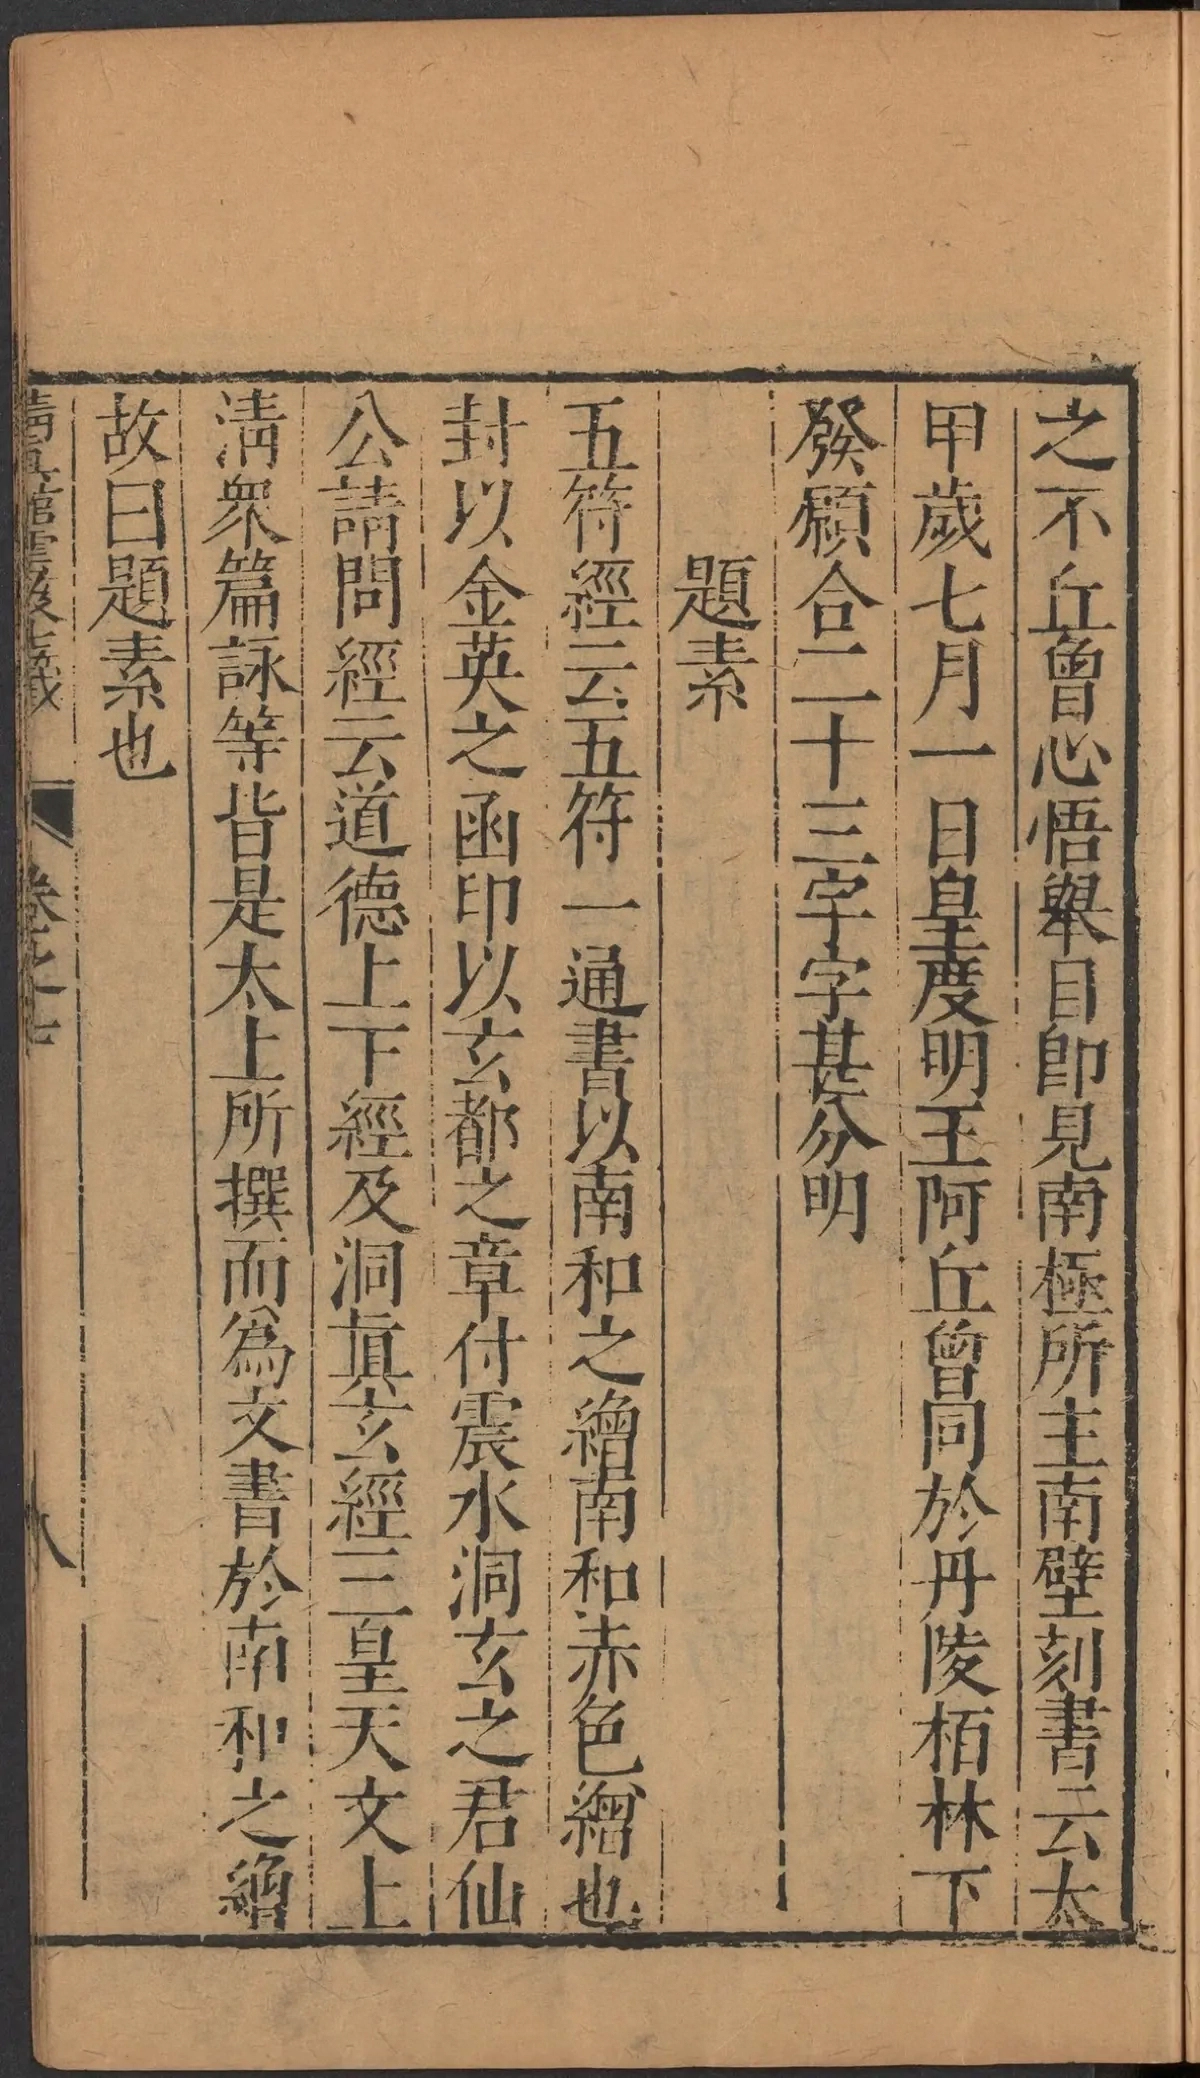 之不丘曾心悟舉目即見南極所主南壁刻書云太
甲歲七月一日皇度明王阿丘曾同於丹陵栢林下
發願合二十三字字甚分明
題素
五符經云五符一通書以南和之繒南和赤色繒也
封以金英之函印以玄都之章付震水洞玄之君仙
公請問經云道德上下經及洞眞玄經三皇天文上
淸衆篇詠等皆是太上所撰而爲文書於南和之繒
故曰題素也
淸眞館雲笈七籖
卷之七
八